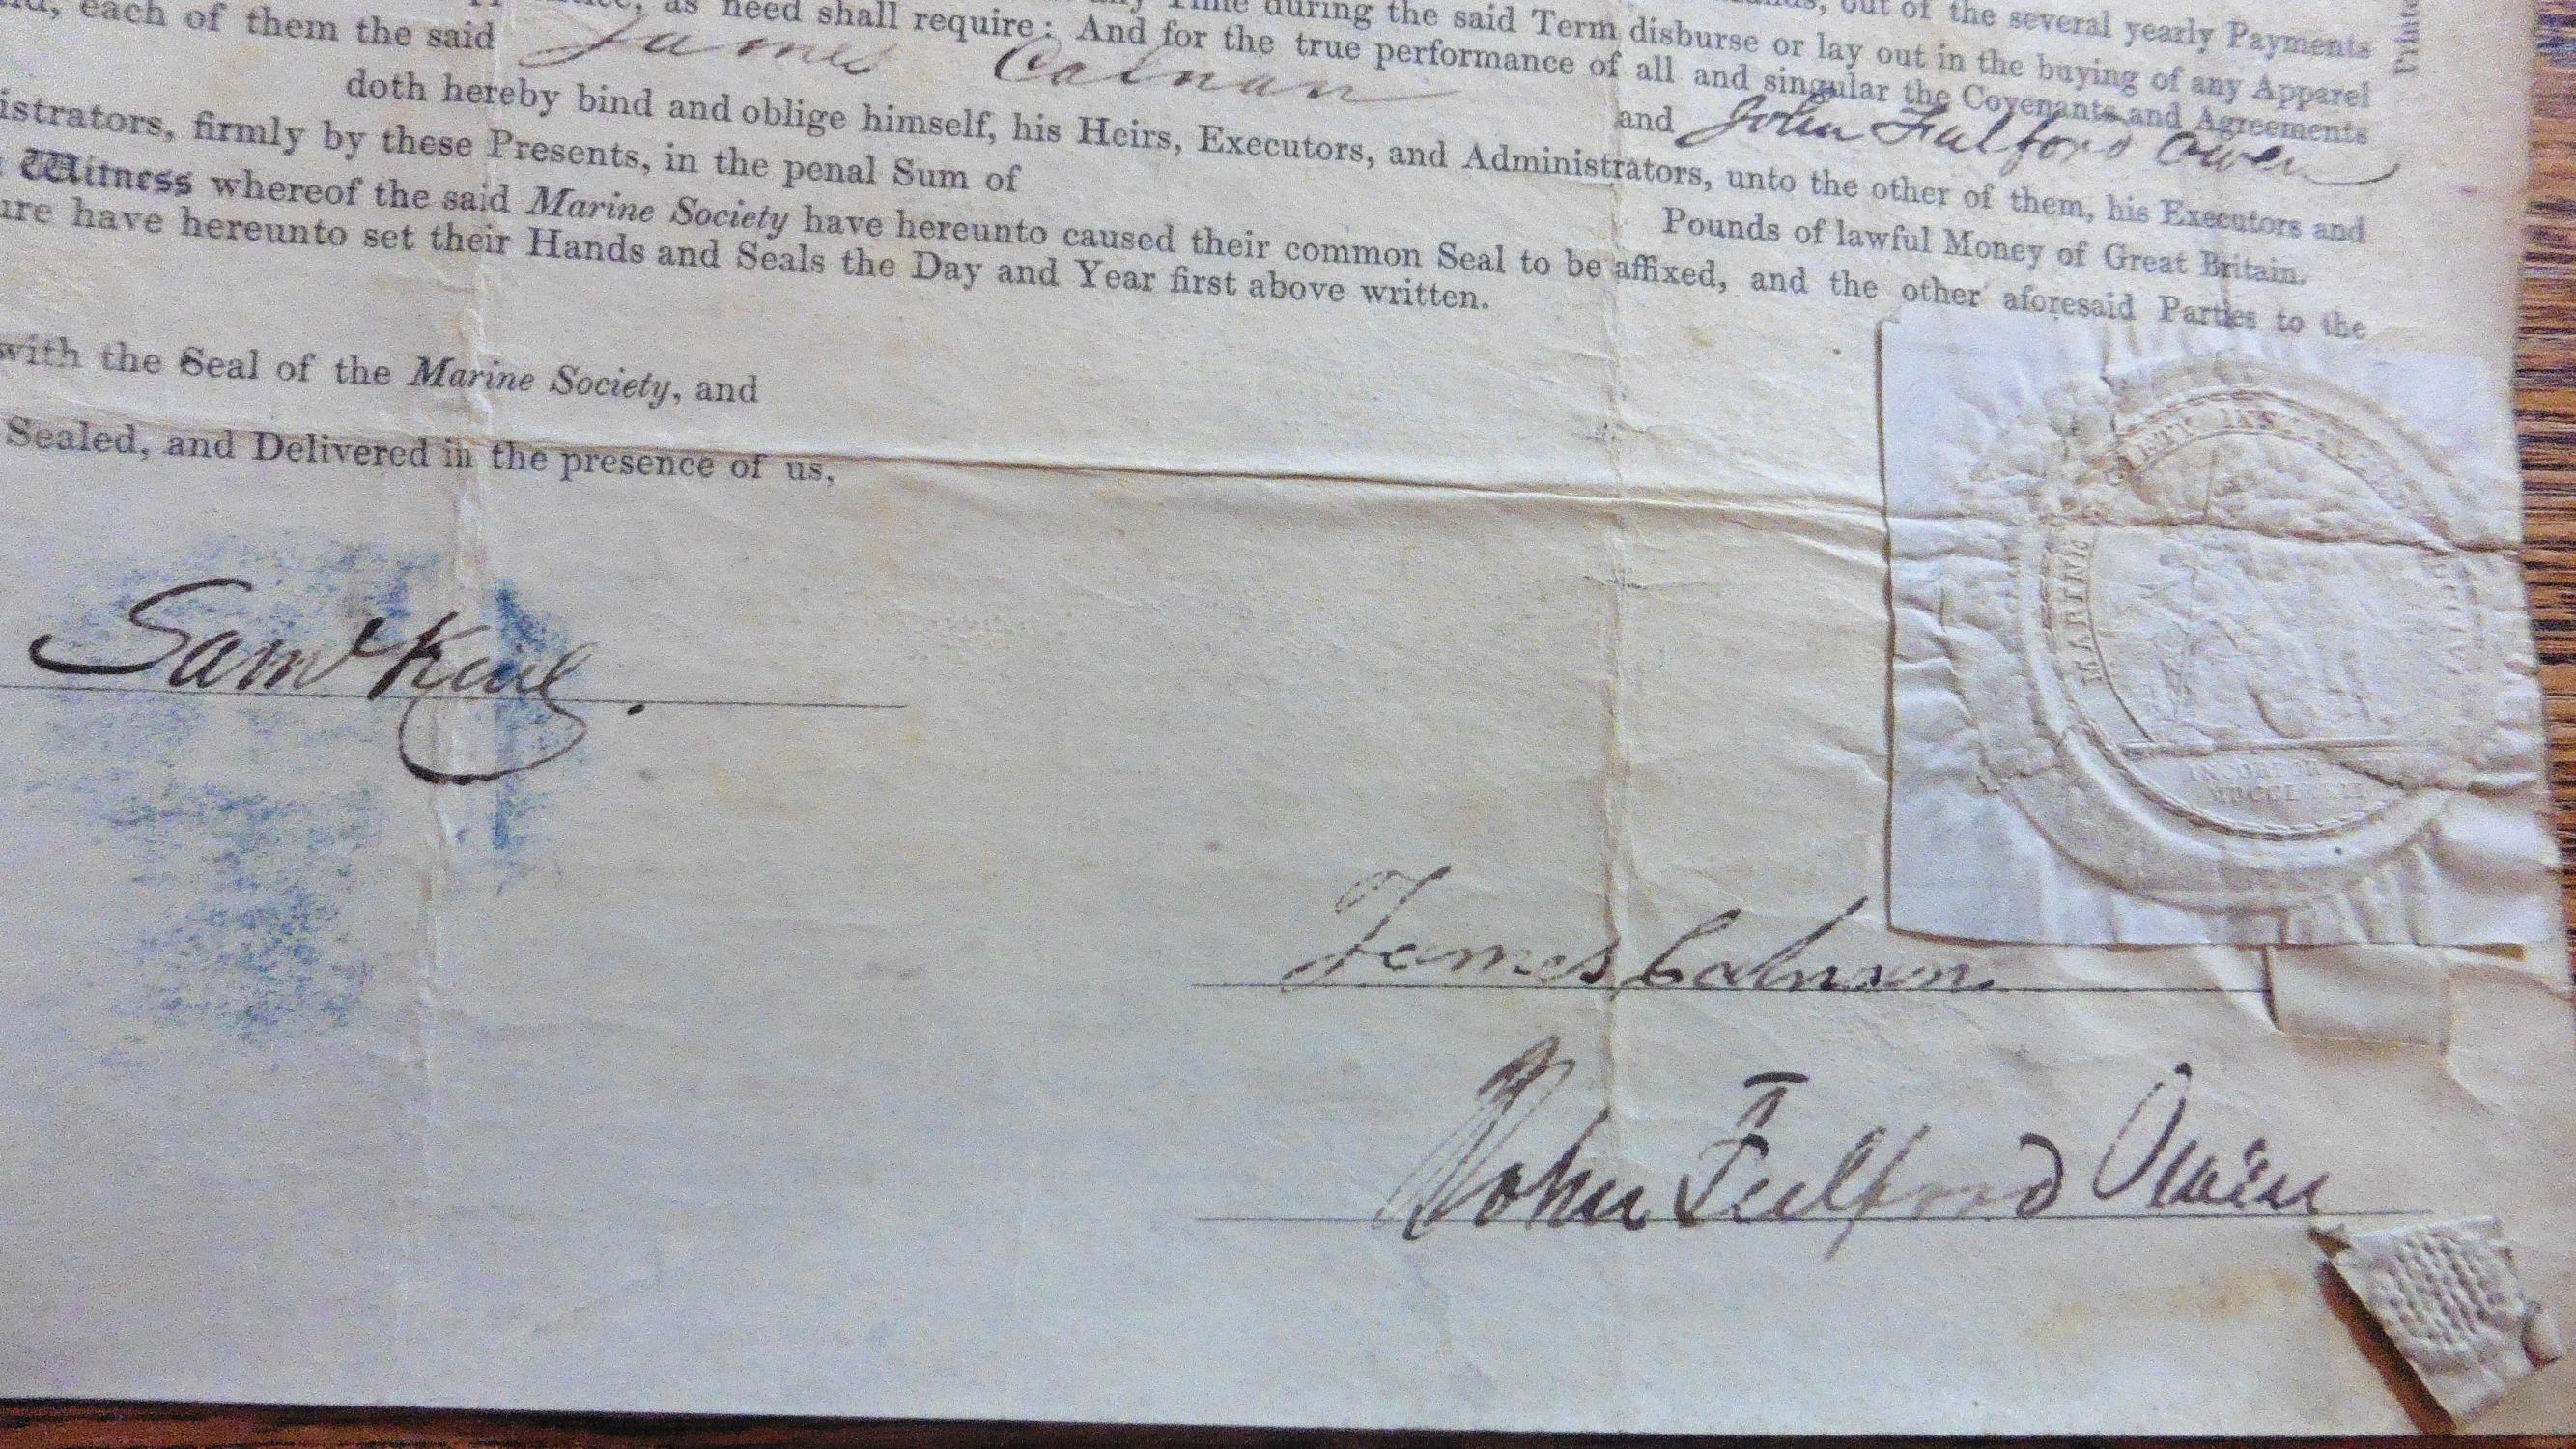 as need shall require: And for the true performance of all and singular the Covenants and Agreements
Time during the said Term disburse or lay out in the buying of any Apparel
out of the several yearly Payments
each of them the said James Calnan and John Fulford Owen
doth hereby bind and oblige himself, his Heirs, Executors, and Administrators, unto the other of them, his Executors and
istrators, firmly by these Presents, in the penal Sum of Pounds of lawful Money of Great Britain.
Witness whereof the said Marine Society have hereunto caused their common Seal to be affixed, and the other aforesaid Parties to the
ure have hereunto set their Hands and Seals the Day and Year first above written.
with the Seal of the Marine Society, and
Sealed, and Delivered in the presence of us,
MARINE
Saml
James Calnan.
John Fulford Owen